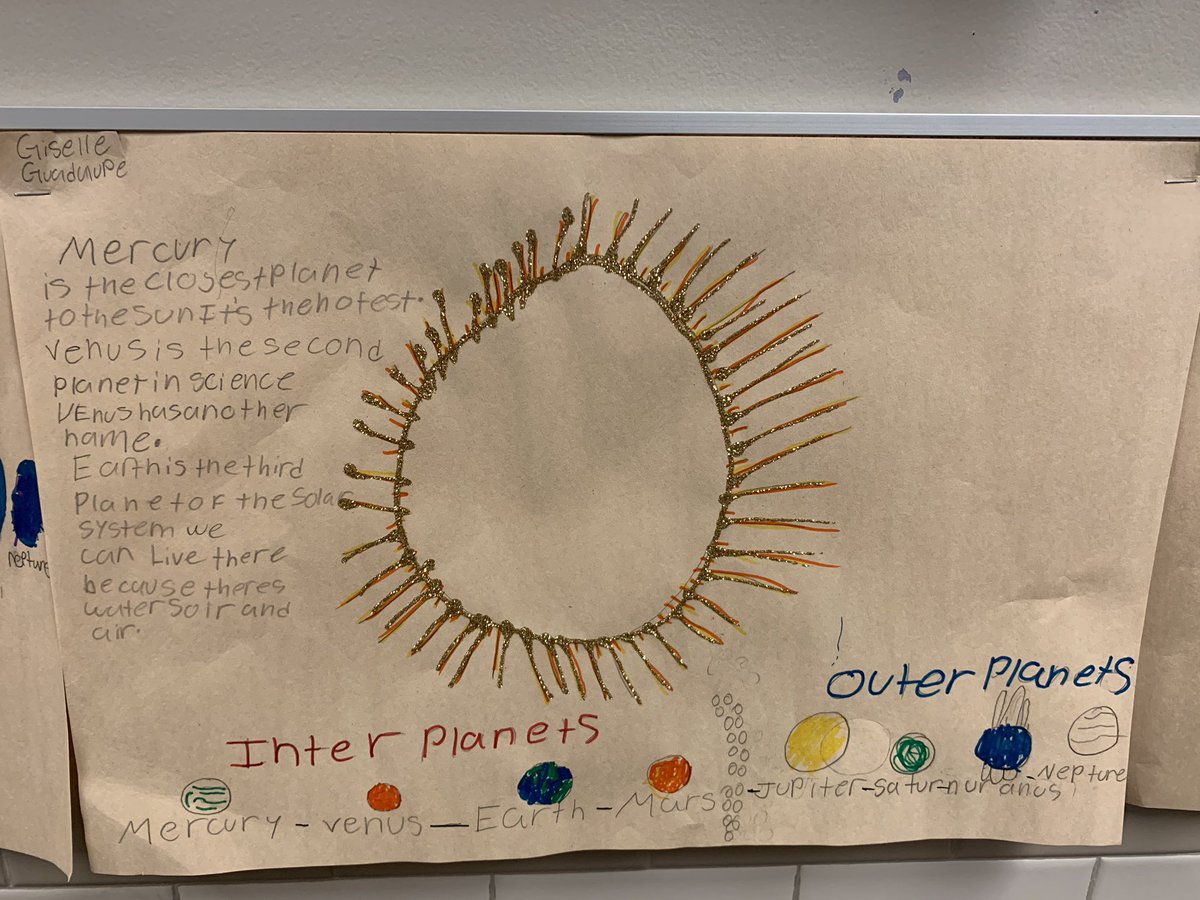 Giselle
Guadaupe
Mercury
is the closest planet
to the sun It's the hotest.
venus is the second
planet in science
VEnus has another
name.
Earth is the third
Planet of the Solar
System we
can Live there
because theres
water soir and
air.
Outer Planets
Inter Planets
Mercury - venus - Earth - Mars - Jupiter - satur-nuranus - Nepture
Nepture